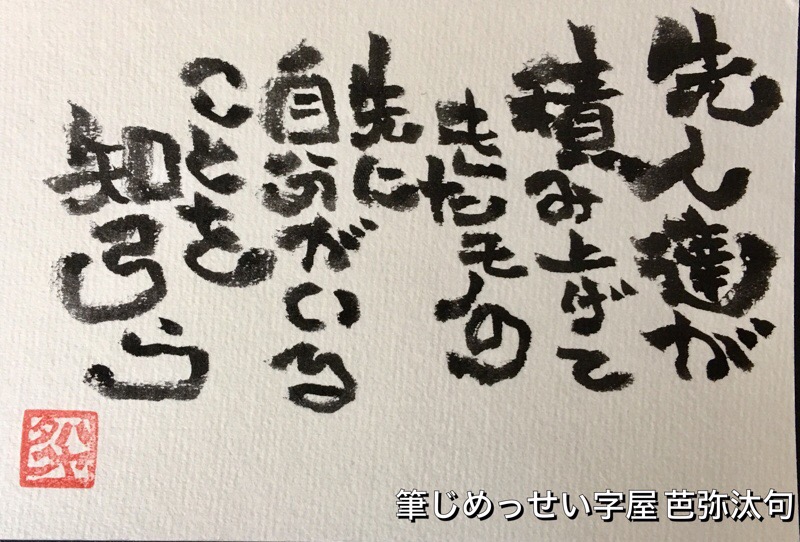 先人達が
積み上げて
きたモノの
先に
自分がいる
ことを
知ろう
筆じめっせい字屋 芭弥汰句